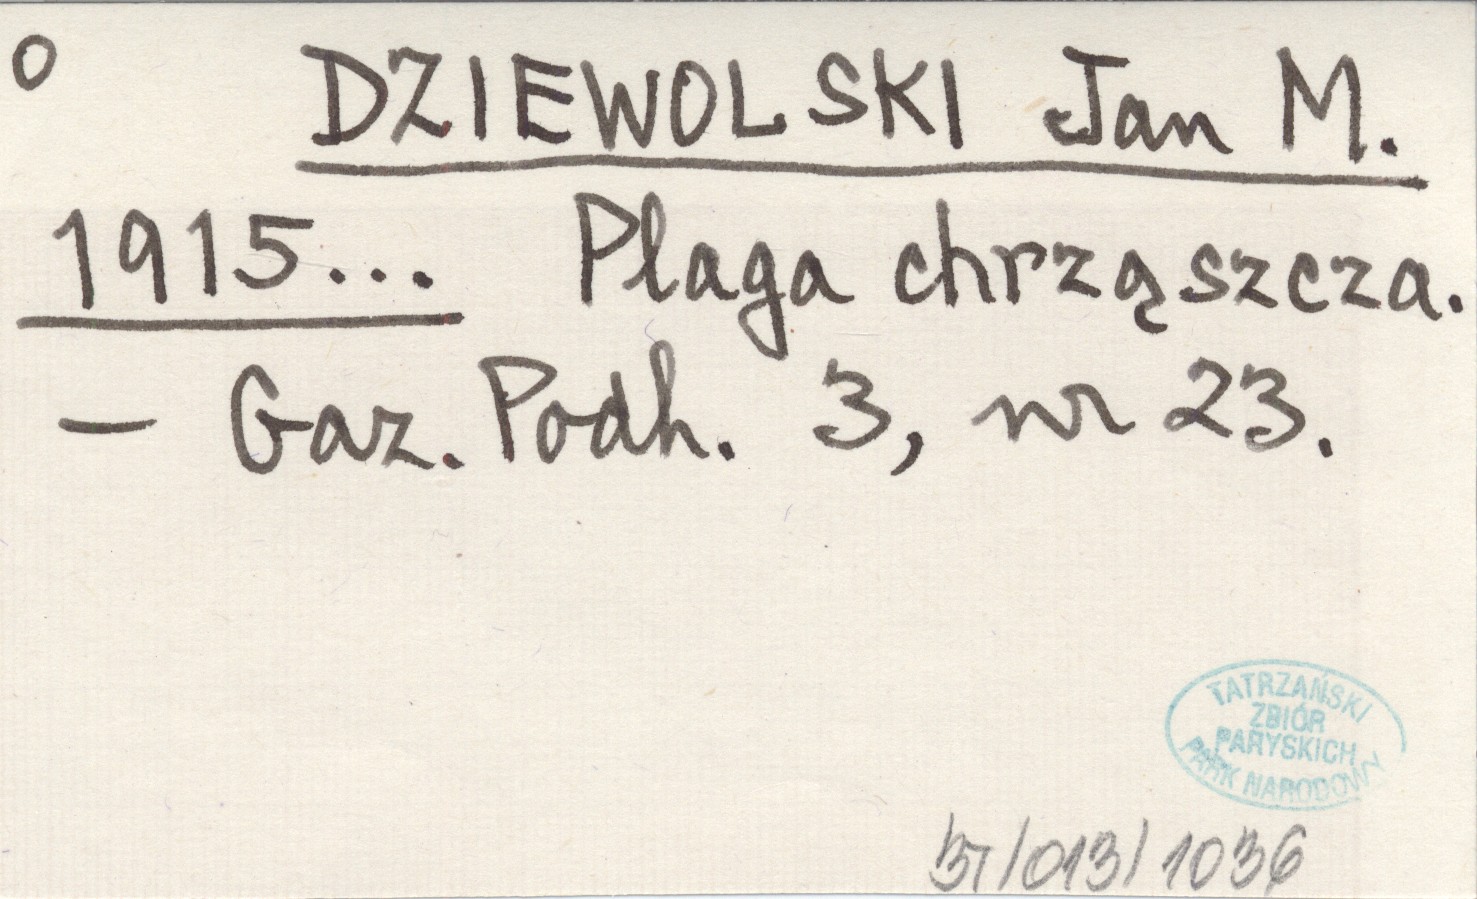 o DZIEWOLSKI Jan M.
1915... Plaga chrząszcza.
– Gaz. Podh. 3, nr 23.
TATRZAŃSKI
ZBIÓR
PARYSKICH
PARK NARODOWY
/013/1036